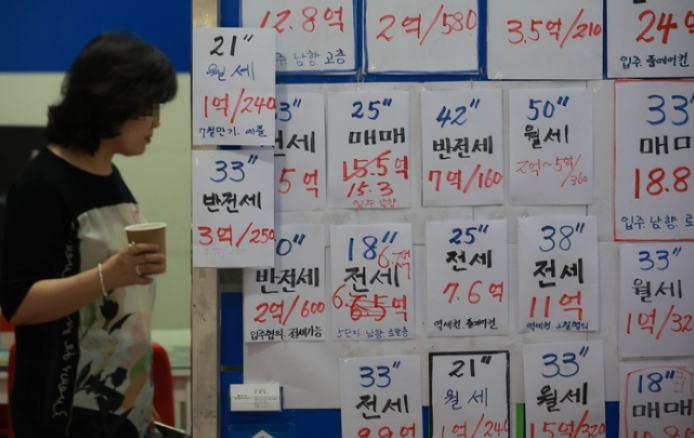 12.8억
입주 남향 고층
2억/580
3.5억/210
24억
입주 풀메이컨
21"
월세
1억/240
33"
반전세
3억/250
3"
전세
5억
25"
매매
15.5억
15.3
입주 남향
42"
반전세
7억/160
50"
월세
2억~5억
/360
33"
매매
18.8
입주 남향 로
0"
반전세
2억/600
18"
전세
6억
5단지 남향 로얄층
25"
전세
7.6억
38"
전세
11억
33"
월세
1억/32
33"
전세
21"
월세
1억/240
33"
월세
1.5억/320
18"
매매